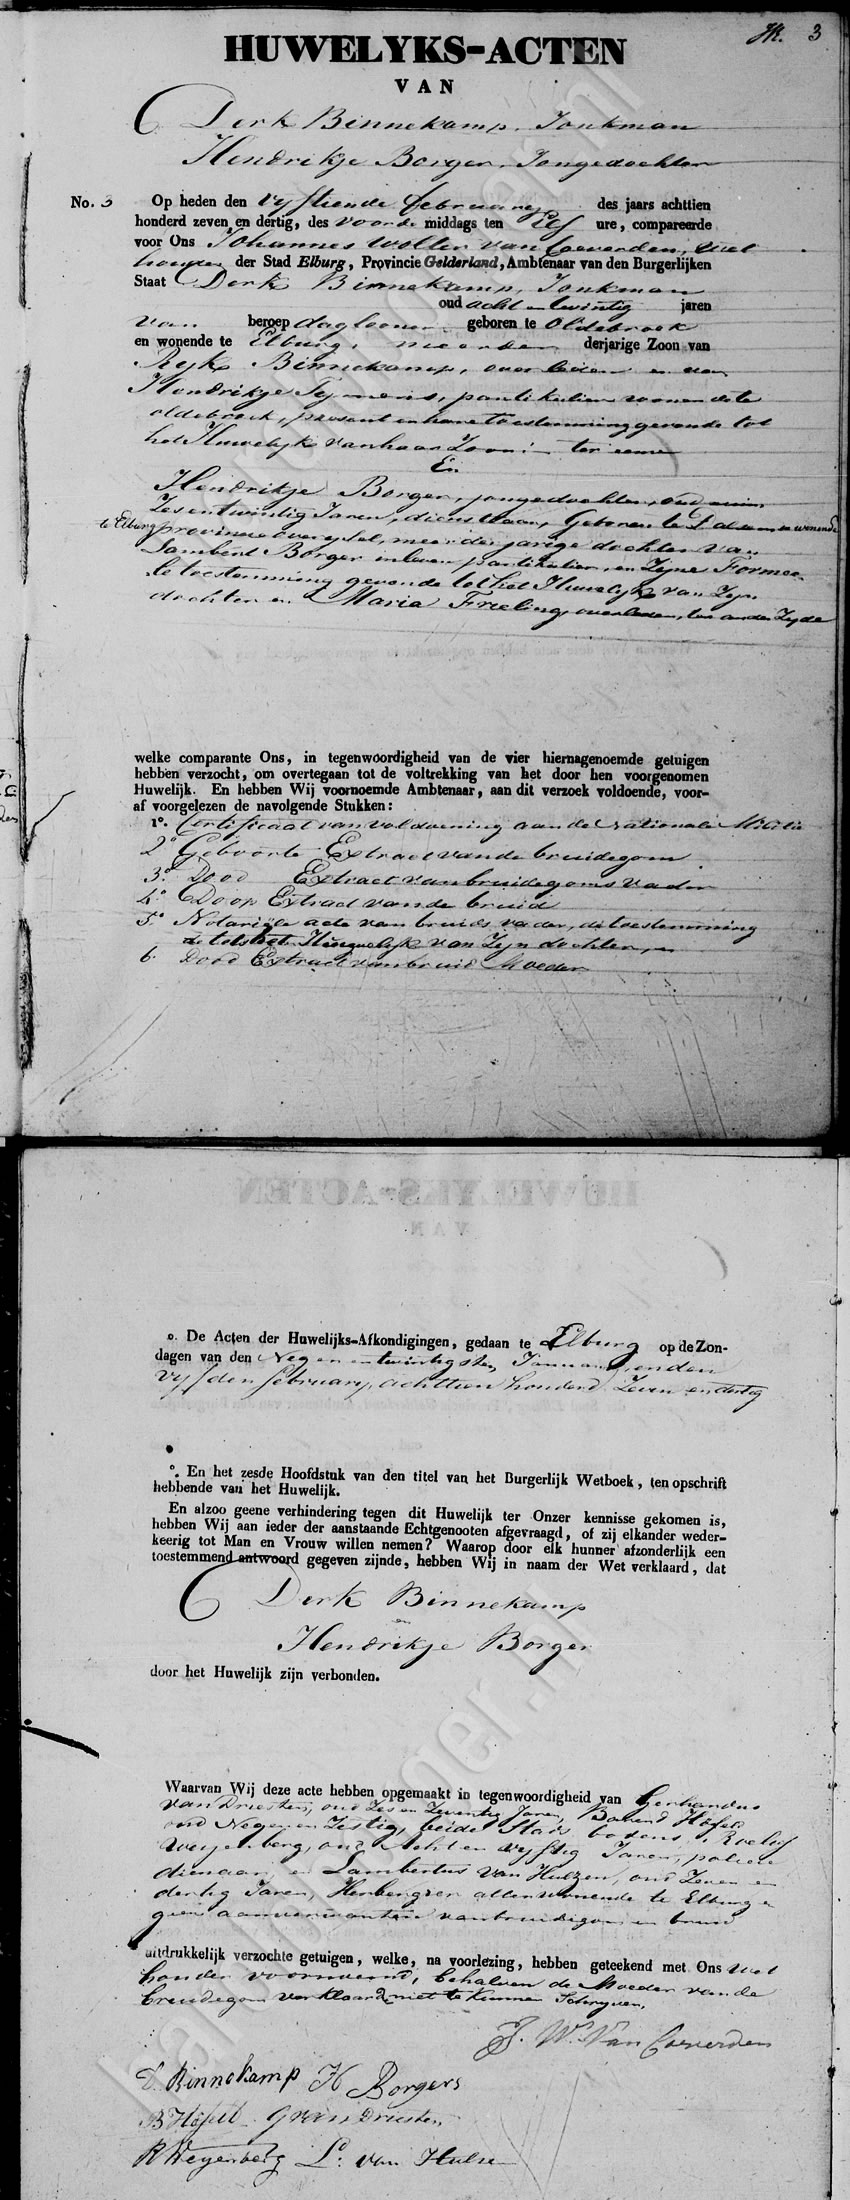 3
HUWELYKS-ACTEN
VAN
Derk Binnekamp, Jonkman
Hendrikje Borger, Jongedochter
No. 3 Op heden den vyftiende february des jaars achttien
honderd zeven en dertig, des voorde middags ten Elf ure, compareerde
voor Ons Johannes Wolter van Coeverden, Wet
houder der Stad Elburg, Provincie Gelderland, Ambtenaar van den Burgerlijken
Staat Derk Binnekamp, Jonkman
oud acht en twintig jaren
van beroep daglooner geboren te Oldebroek
en wonende te Elburg, meerder derjarige Zoon van
Ryk Binnekamp, overleden en van
Hendrikje Tymens, partikulier wonende te
oldebroek, present en hare toestemming gevende tot
het Huwelyk van haar Zoon ter eenre
En
Hendrikje Borger, jongedochter, oud ruim
Zesentwintig Jaren, dienstbaar, Geboren te en wonende
te Elburg provincie overyssel, meerderjarige dochter van
Lambert Borger inleven partikulier, en Zyne Formee
le toestemming gevende tot het Huwelyk van Zyn
dochter en Maria Frieling, overleden, ter ander Zyde
welke comparante Ons, in tegenwoordigheid van de vier hiernagenoemde getuigen
hebben verzocht, om overtegaan tot de voltrekking van het door hen voorgenomen
Huwelijk. En hebben Wij voornoemde Ambtenaar, aan dit verzoek voldoende, voor-
af voorgelezen de navolgende Stukken:
1o. Certificaat van voldoening aan de Nationale Militie
2o Geboorte Extract van de bruidegom
3o. Dood Extract van bruidegoms vader
4o. Doop Extract van de bruid
5o. Notariële acte van bruids vader, de toestemming
tot het Huwelyk van Zyn dochter, en
6. Dood Extract van bruid Moeder
o. De Acten der Huwelijks-Afkondigingen, gedaan te Elburg op de Zon-
dagen van den Negen en twintigsten January, en den
vyfden february, achttien honderd Zeven en dertig
o. En het zesde Hoofdstuk van den titel van het Burgerlijk Wetboek, ten opschrift
hebbende van het Huwelijk.
En alzoo geene verhindering tegen dit Huwelijk ter Onzer kennisse gekomen is,
hebben Wij aan ieder der aanstaande Echtgenooten afgevraagd, of zij elkander weder-
keerig tot Man en Vrouw willen nemen? Waarop door elk hunner afzonderlijk een
toestemmend antwoord gegeven zijnde, hebben Wij in naam der Wet verklaard, dat
Derk Binnekamp
en
Hendrikje Borger
door het Huwelijk zijn verbonden.
Waarvan Wij deze acte hebben opgemaakt in tegenwoordigheid van Gerhardus
van Driesten, oud Zes en Zeventig Jaren, Barend Höfelt
oud Negen en Zestig, beide Stads bodens, Roelof
Weyenberg, oud Acht en vyftig Jaren, policie
dienaar, en Lambertus van Hulzen, oud Zeven en
dertig Jaren, Herbergier allen wonende te Elburg en
geen aanverwanten van bruidegom en bruid
uitdrukkelijk verzochte getuigen, welke, na voorlezing, hebben geteekend met Ons Wet
houder voornoemd, behalven de Moeder van de
bruidegom verklaarde niet te kunnen Schryven.
J. W. Van Coeverden
D. Binnekamp H Borgers
B Höfelt G van Driesten
R Weyenberg L. van Hulse